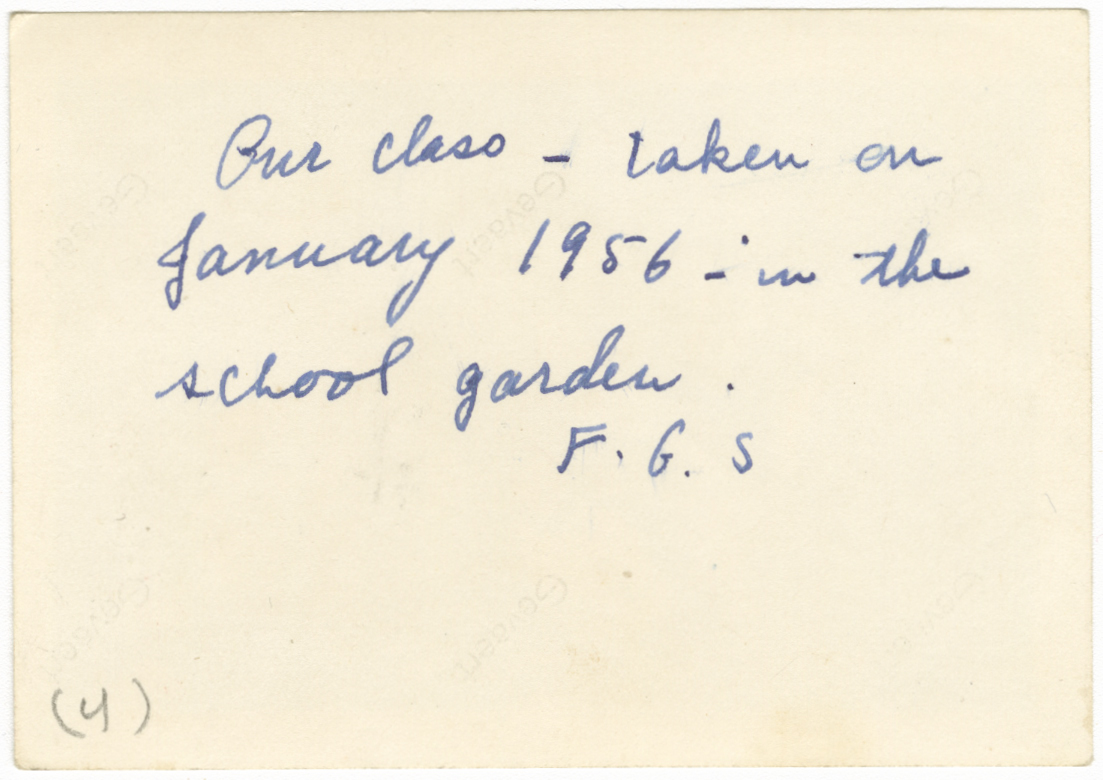 Our class - taken on
January 1956 - in the
school garden.
F. G. S
(4)
Gevaert
Gevaert
Gevaert
Gevaert